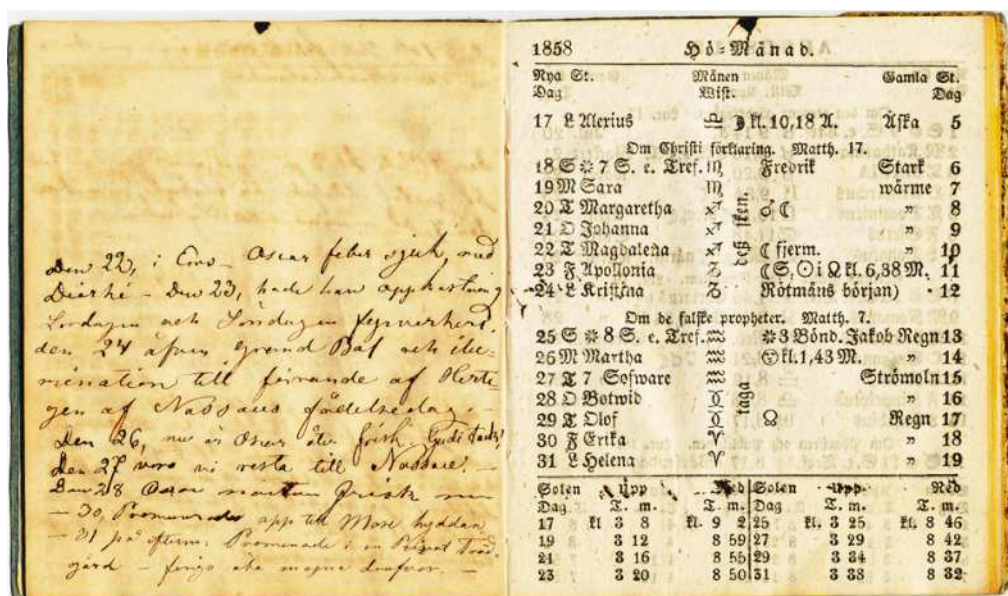 Den 22, i Ems Oscar feber sjuk, med
Diarhé - Den 23, hade han uppkastning
Lördagen och Söndagen fyrverkeri,
den 24 äfven grand Bal och illu-
mination till firande af Herti-
gen af Nassaus födelsedag. -
Den 26, nu är Oscar åter frisk. Gudi tack!
Den 27 voro vi resta till Nassau. -
Den 28 Oscar nästan frisk
- 30, Promenade upp till Mose hyddan
- 31 på efterm: Promenade i en Privat Träd-
gård - fingo äta
1858 Hö-Månad.
Nya St. Månen Gamla St.
Dag Wist. Dag
17 L Alexius ♎ ☽ kl. 10,18 A. Äska 5
Om Christi förklaring. Matth. 17.
18 S ☼ 7 S. e. Tref. ♏ Fredrik Stark 6
19 M Sara ♏ wärme 7
20 T Margaretha ♐ ☌ ☾ " 8
21 O Johanna ♐ " 9
22 T Magdalena ♐ ☾ fjerm. " 10
23 F Apollonia ♑ (S. ☉ i ♌ kl. 6,38 M. 11
24 L Kristina ♑ Rötmåns början) · 12
deß sken.
Om de falske propheter. Matth. 7.
25 S ☼ 8 S. e. Tref. ♒ ☼ 3 Bönd. Jakob Regn 13
26 M Martha ♒ kl. 1,43 M. " 14
27 T 7 Sofware ♒ Strömoln 15
28 O Botwid ♓ " 16
29 T Olof ♓ ☊ Regn 17
30 F Erika ♈ " 18
31 L Helena ♈ " 19
taga
Solen Upp Ned Solen Upp Ned
Dag T. m. T. m. Dag T. m. T. m.
17 kl 3 8 kl. 9 2 25 kl. 3 25 kl. 8 46
19 3 12 8 59 27 3 29 8 42
21 3 16 8 55 29 3 34 8 37
23 3 20 8 50 31 3 38 8 32